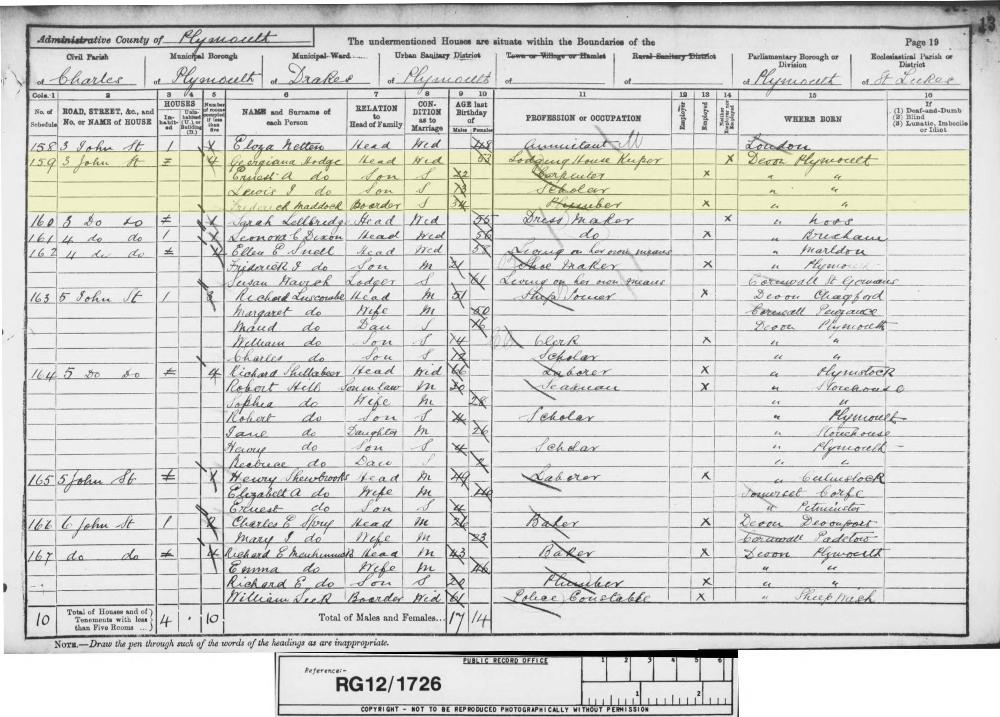 13
Administrative County of Plymouth The undermentioned Houses are situate within the Boundaries of the Page 19
Civil Parish Municipal Borough Municipal Ward Urban Sanitary District Town or Village or Hamlet Rural Sanitary District Parliamentary Borough or Division Ecclesiastical Parish or District
of Charles of Plymouth of Drakes of Plymouth of of of Plymouth of St Lukes
Cols. 1 2 3 4 5 6 7 8 9 10 11 12 13 14 15 16
No. of Schedule ROAD, STREET, &c., and No. or NAME of HOUSE HOUSES Inhabited Uninhabited (U.), or Building (B.) Number of rooms occupied if less than five NAME and Surname of each Person RELATION to Head of Family CONDITION as to Marriage AGE last Birthday of Males Females PROFESSION or OCCUPATION Employer Employed Neither Employer nor Employed WHERE BORN If (1) Deaf-and-Dumb (2) Blind (3) Lunatic, Imbecile or Idiot
158 3 John St 1 Eloza Netten Head Wed 48 London
159 3 John St 4 Georgiana Hodge Head Wid 53 Lodging House Keeper x Devon Plymouth
Ernest A do Son S 22 Carpenter x " "
Lewis J do Son S 13 Scholar " "
Frederick Maddock Boarder S 34 Plumber x " "
160 3 Do do Sarah Lethbridge Head Wid 55 Dress Maker x " Noss
161 4 do do 1 Leonora C Dixon Head Wed 56 do x " Brixham
162 4 do do Ellen E Snell Head Wed 58 Living on her own means " Marldon
Frederick J do Son M 21 Shoe Maker x " Plymouth
Susan Lodger S 61 Living on her own means Cornwall St Germans
163 5 John St 1 3 Richard Luscombe Head M 51 Joiner x Devon Chagford
Margaret do Wife M 50 Cornwall Penzance
Maud do Dau S 16 Devon Plymouth
William do Son S 14 Clerk x " "
Charles do Son S 12 Scholar " "
164 5 Do Do 4 Richard Shillabeer Head Wid 66 Laborer x " Plymstock
Robert Hill Son in law M 30 Seaman x " Stonehouse
Sophia do Wife M 28 " "
Robert do Son S 4 Scholar " Plymouth
Jane do Daughter M 26 " Stonehouse
Henry do Son S 4 Scholar " Plymouth
Beatrice do Dau S 2 " "
165 5 John St Henry Shewbrooks Head M 49 Laborer x " Culmstock
Elizabeth A do Wife M 40 Somerset Corfe
Ernest do Son S 4 " Pitminster
166 6 John St 1 2 Charles E Spry Head M 26 Baker x Devon Devonport
Mary J do Wife M 23 Cornwall Padstow
167 do do 4 Richard E Menhinnick Head M 43 Baker x Devon Plymouth
Emma do Wife M 46 " "
Richard E do Son S 20 Plumber x " "
William Leek Boarder Wid 61 Police Constable x "
10 Total of Houses and of Tenements with less than Five Rooms ... 4 10 Total of Males and Females... 17 14
NOTE.—Draw the pen through such of the words of the headings as are inappropriate.
PUBLIC RECORD OFFICE 1 2 3 4 5 6
Reference:-
RG12/1726
1 2
COPYRIGHT - NOT TO BE REPRODUCED PHOTOGRAPHICALLY WITHOUT PERMISSION